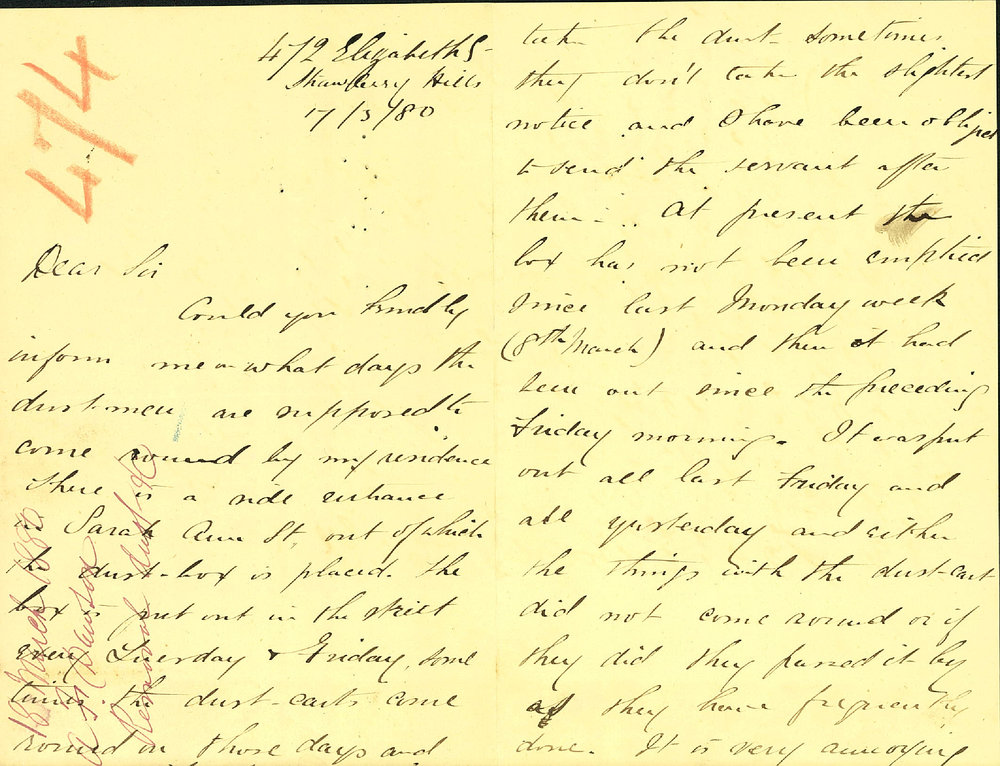 474
472 Elizabeth S-
Strawberry Hills
17/3/80
Dear Sir
Could you kindly
inform me on what days the
dust-men are supposed to
come round by my residence
There is a side entrance
Sarah Ann St, out of which
the dust-box is placed. The
box is put out in the street
every Tuesday & Friday, some
times the dust-carts come
round on those days and
take the dust- sometimes
they don't take the slightest
notice and I have been obliged
to send the servant after
them- At present the
box has not been emptied
since last Monday week
(8th March) and then it had
been out since the preceding
Friday morning. It was put
out all last Friday and
all yesterday and either
the things with the dust-cart
did not come round or if
they did they passed it by
as they have frequently
done. It is very annoying
March 1880
Dawson
Removal dust &c